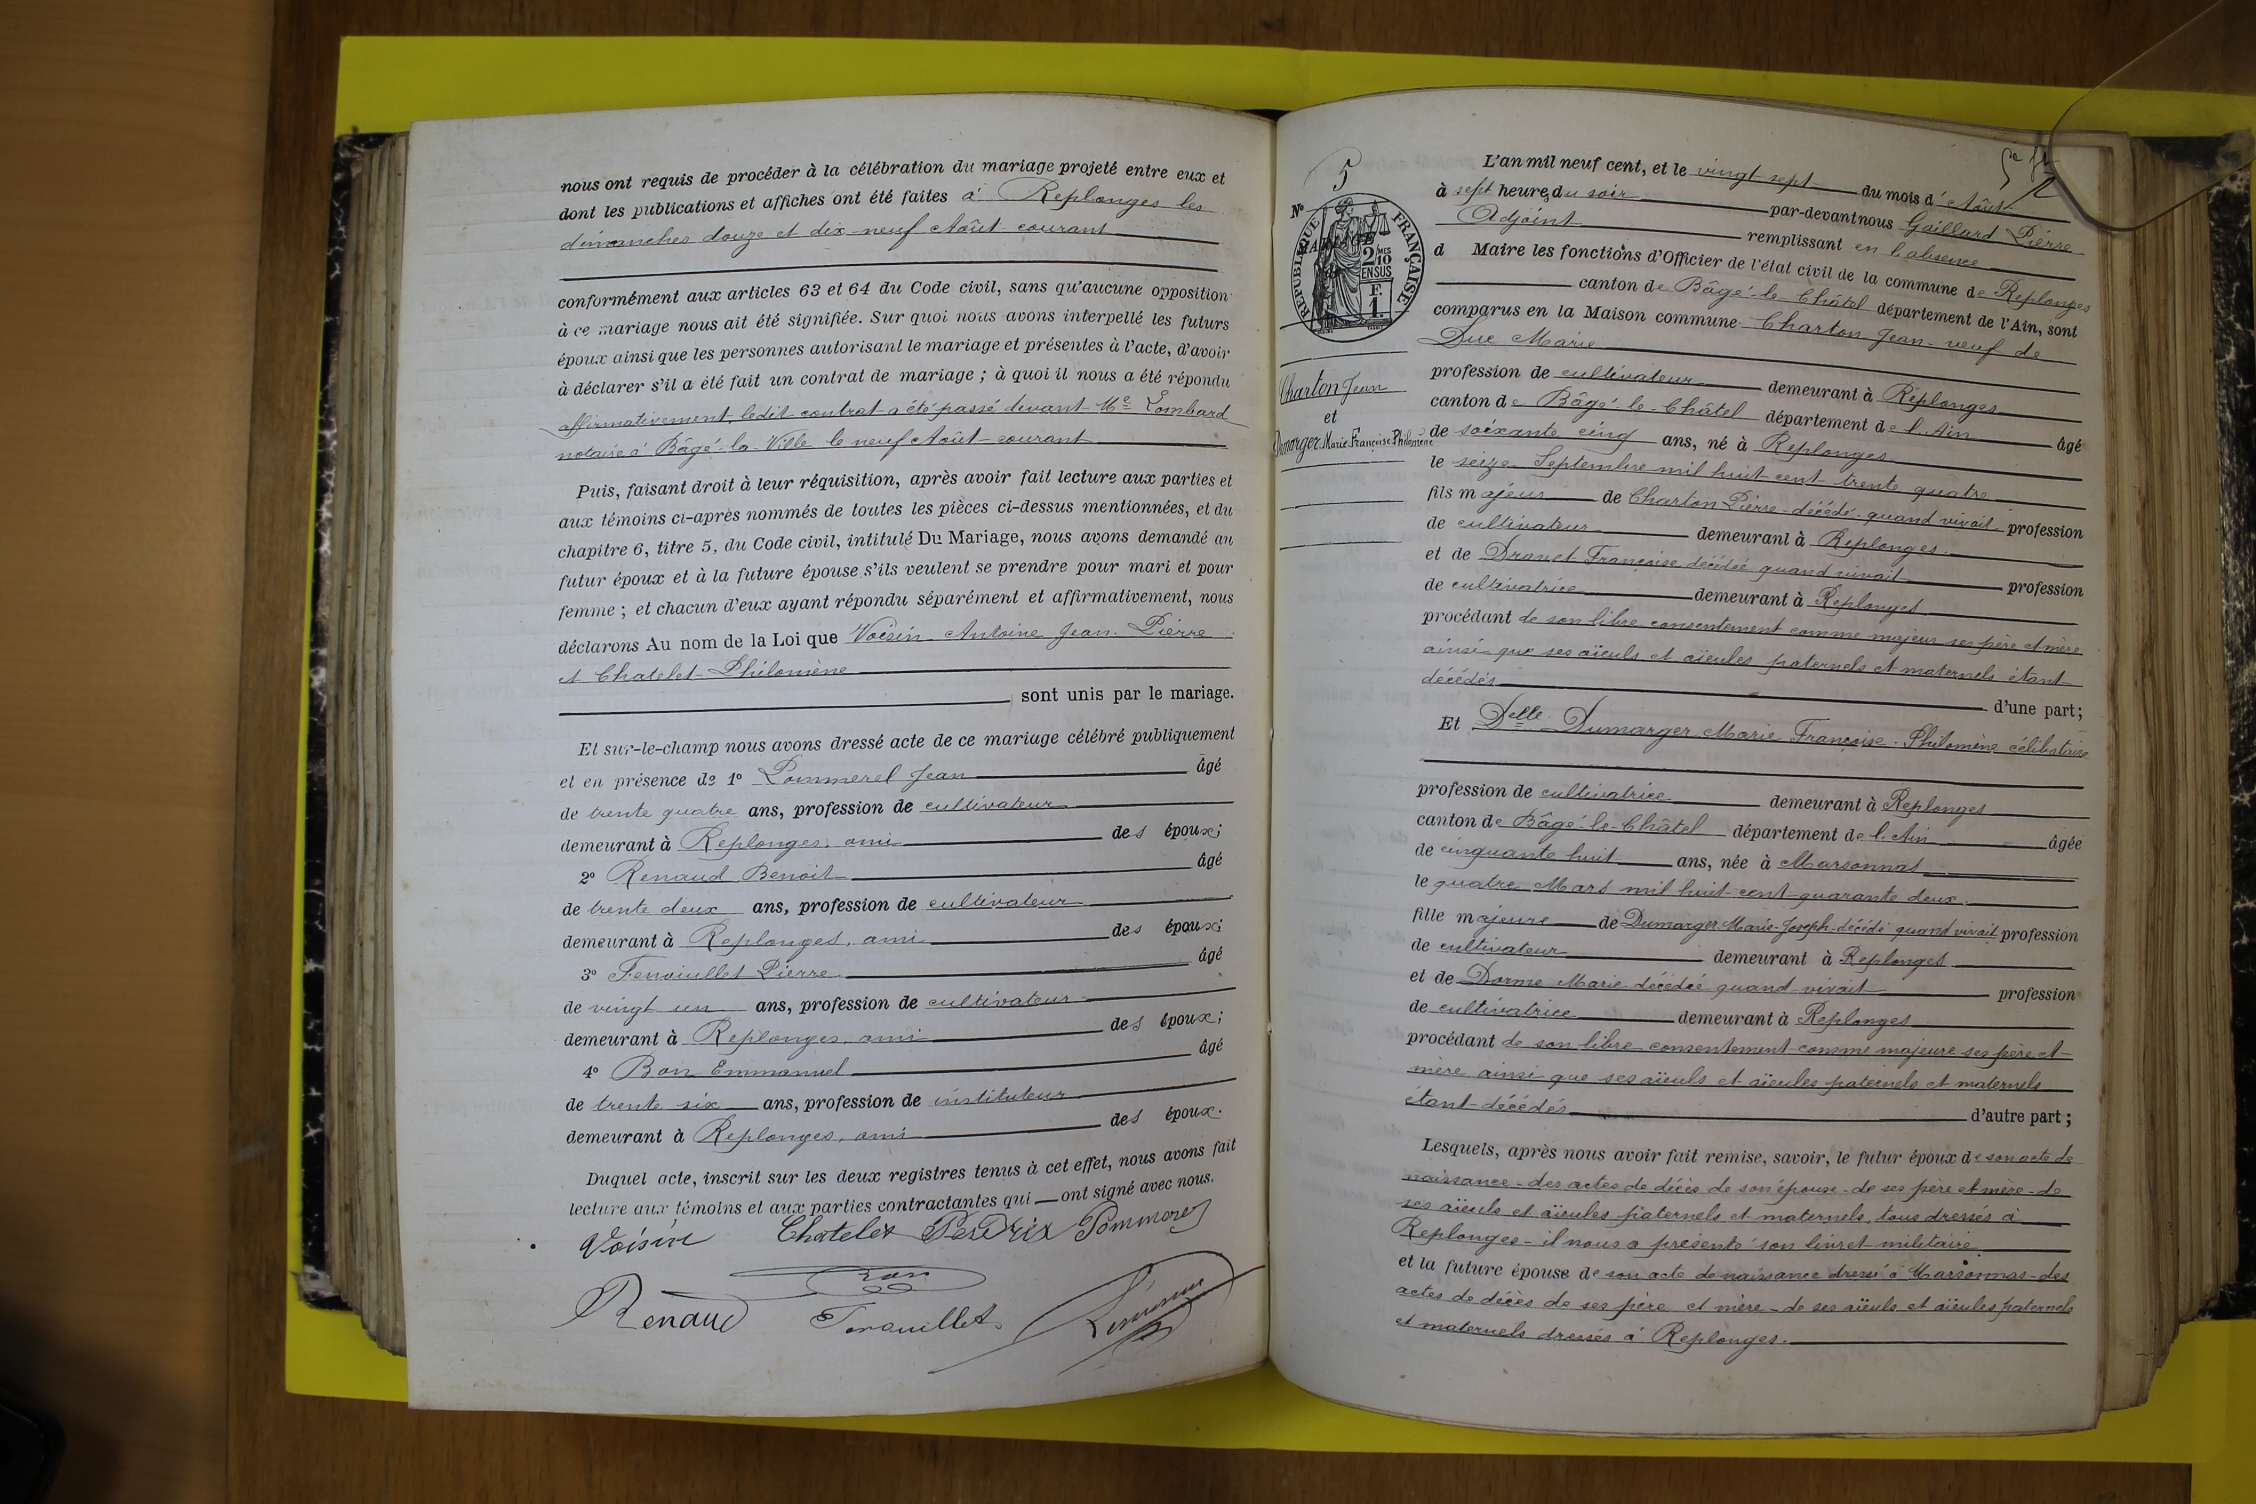 nous ont requis de procéder à la célébration du mariage projeté entre eux et
dont les publications et affiches ont été faites à Replonges les
dimanches douze et dix-neuf Août courant
conformément aux articles 63 et 64 du Code civil, sans qu'aucune opposition
à ce mariage nous ait été signifiée. Sur quoi nous avons interpellé les futurs
époux ainsi que les personnes autorisant le mariage et présentes à l'acte, d'avoir
à déclarer s'il a été fait un contrat de mariage ; à quoi il nous a été répondu
affirmativement, ledit contrat a été passé devant Me Lombard
notaire à Bâgé-la-Ville le neuf Août courant
Puis, faisant droit à leur réquisition, après avoir fait lecture aux parties et
aux témoins ci-après nommés de toutes les pièces ci-dessus mentionnées, et du
chapitre 6, titre 5, du Code civil, intitulé Du Mariage, nous avons demandé au
futur époux et à la future épouse s'ils veulent se prendre pour mari et pour
femme ; et chacun d'eux ayant répondu séparément et affirmativement, nous
déclarons Au nom de la Loi que Voisin Antoine Jean-Pierre
et Chatelet Philomène
sont unis par le mariage.
Et sur-le-champ nous avons dressé acte de ce mariage célébré publiquement
et en présence de 1° Pommerel Jean âgé
de trente quatre ans, profession de cultivateur
demeurant à Replonges, ami des époux;
2° Renaud Benoit âgé
de trente deux ans, profession de cultivateur
demeurant à Replonges, ami des époux;
3° Fenouillet Pierre âgé
de vingt un ans, profession de cultivateur
demeurant à Replonges, ami des époux;
4° Bon Emmanuel âgé
de trente six ans, profession de instituteur
demeurant à Replonges, ami des époux.
Duquel acte, inscrit sur les deux registres tenus à cet effet, nous avons fait
lecture aux témoins et aux parties contractantes qui ont signé avec nous.
Voisin Chatelet Perdrix Pommerel
Bon
Renaud Fenouillet
5
N°
MARIAGE
RÉPUBLIQUE FRANÇAISE
2 MES
10
EN SUS
F.
1.
Charton Jean
et
Dumarger Marie Françoise Philomène
L'an mil neuf cent, et le vingt sept du mois d'Août
à sept heures du soir par-devant nous Gaillard Pierre
Adjoint remplissant en l'absence
d Maire les fonctions d'Officier de l'état civil de la commune de Replonges
canton de Bâgé-le-Châtel département de l'Ain, sont
comparus en la Maison commune Charton Jean veuf de
Duc Marie
profession de cultivateur demeurant à Replonges
canton de Bâgé-le-Châtel département de l'Ain âgé
de soixante cinq ans, né à Replonges
le seize Septembre mil huit cent trente quatre
fils majeur de Charton Pierre décédé quand vivait profession
de cultivateur demeurant à Replonges
et de Dranet Françoise décédée quand vivait profession
de cultivatrice demeurant à Replonges
procédant de son libre consentement comme majeur ses père et mère
ainsi que ses aïeuls et aïeules paternels et maternels étant
décédés d'une part;
Et Delle Dumarger Marie Françoise Philomène célibataire
profession de cultivatrice demeurant à Replonges
canton de Bâgé-le-Châtel département de l'Ain âgée
de cinquante huit ans, née à Marsonnas
le quatre Mars mil huit cent quarante deux
fille majeure de Dumarger Marie-Joseph décédé quand vivait profession
de cultivateur demeurant à Replonges
et de Dorme Marie décédée quand vivait profession
de cultivatrice demeurant à Replonges
procédant de son libre consentement comme majeure ses père et
mère ainsi que ses aïeuls et aïeules paternels et maternels
étant décédés d'autre part ;
Lesquels, après nous avoir fait remise, savoir, le futur époux de son acte de
naissance - des actes de décès de son épouse - de ses père et mère - de
ses aïeuls et aïeules paternels et maternels, tous dressés à
Replonges - il nous a présenté son livret militaire
et la future épouse de son acte de naissance dressé à Marsonnas - des
actes de décès de ses père et mère - de ses aïeuls et aïeules paternels
et maternels dressés à Replonges.